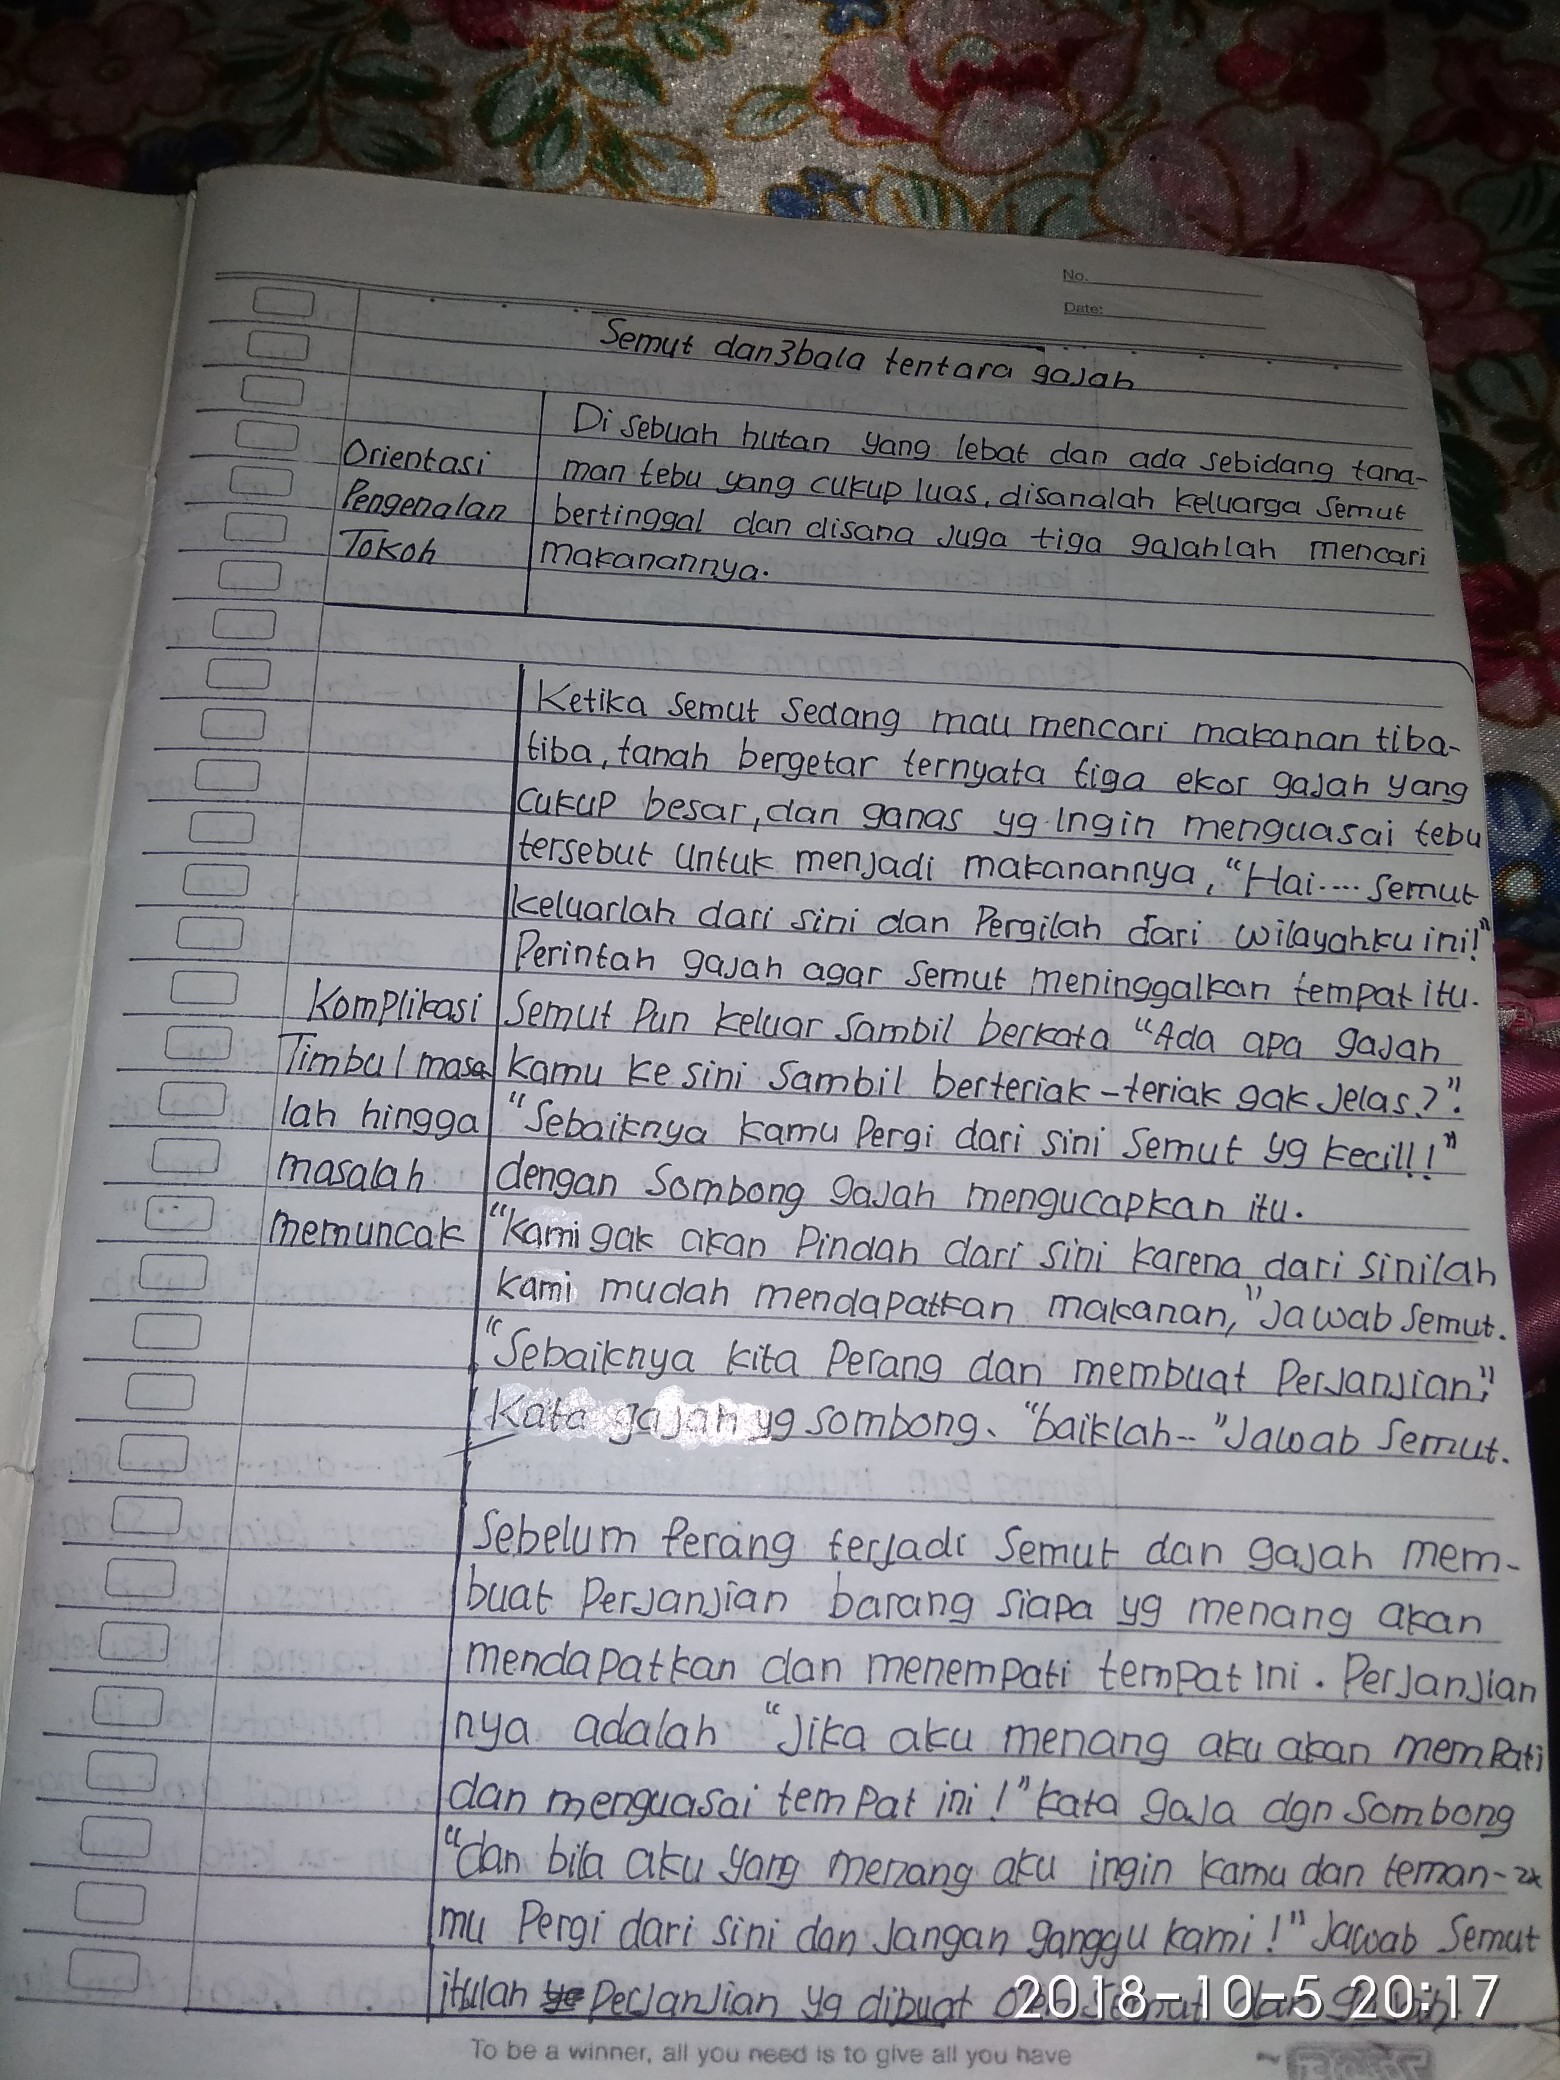 No.
Date:
Semut dan 3 bala tentara gajah
Di sebuah hutan yang lebat dan ada sebidang tana-
Orientasi man tebu yang cukup luas, disanalah keluarga semut
Pengenalan bertinggal dan disana juga tiga gajahlah mencari
Tokoh makanannya.
Ketika semut sedang mau mencari makanan tiba-
tiba, tanah bergetar ternyata tiga ekor gajah yang
cukup besar, dan ganas yg ingin menguasai tebu
tersebut untuk menjadi makanannya, "Hai.... semut
keluarlah dari sini dan Pergilah dari wilayahku ini!"
Perintah gajah agar semut meninggalkan tempat itu.
Komplikasi Semut Pun keluar sambil berkata "Ada apa gajah
Timbul masa kamu ke sini sambil berteriak-teriak gak jelas.?".
lah hingga "Sebaiknya kamu Pergi dari sini semut yg kecil!!"
masalah dengan sombong gajah mengucapkan itu.
memuncak "kami gak akan Pindah dari sini karena dari sinilah
kami mudah mendapatkan makanan," Jawab semut.
"Sebaiknya kita Perang dan membuat Perjanjian,"
Kata gajah yg sombong. "baiklah--" Jawab semut.
Sebelum Perang terjadi semut dan gajah mem-
buat Perjanjian barang siapa yg menang akan
mendapatkan dan menempati tempat ini. Perjanjian
nya adalah "Jika aku menang aku akan mempati
dan menguasai tempat ini!" kata gaja dgn sombong
"dan bila aku yang menang aku ingin kamu dan teman-2x
mu Pergi dari sini dan Jangan ganggu kami!" Jawab semut
itulah Perjanjian yg dibuat oleh semut dan gajah.
2018-10-5 20:17
To be a winner, all you need is to give all you have